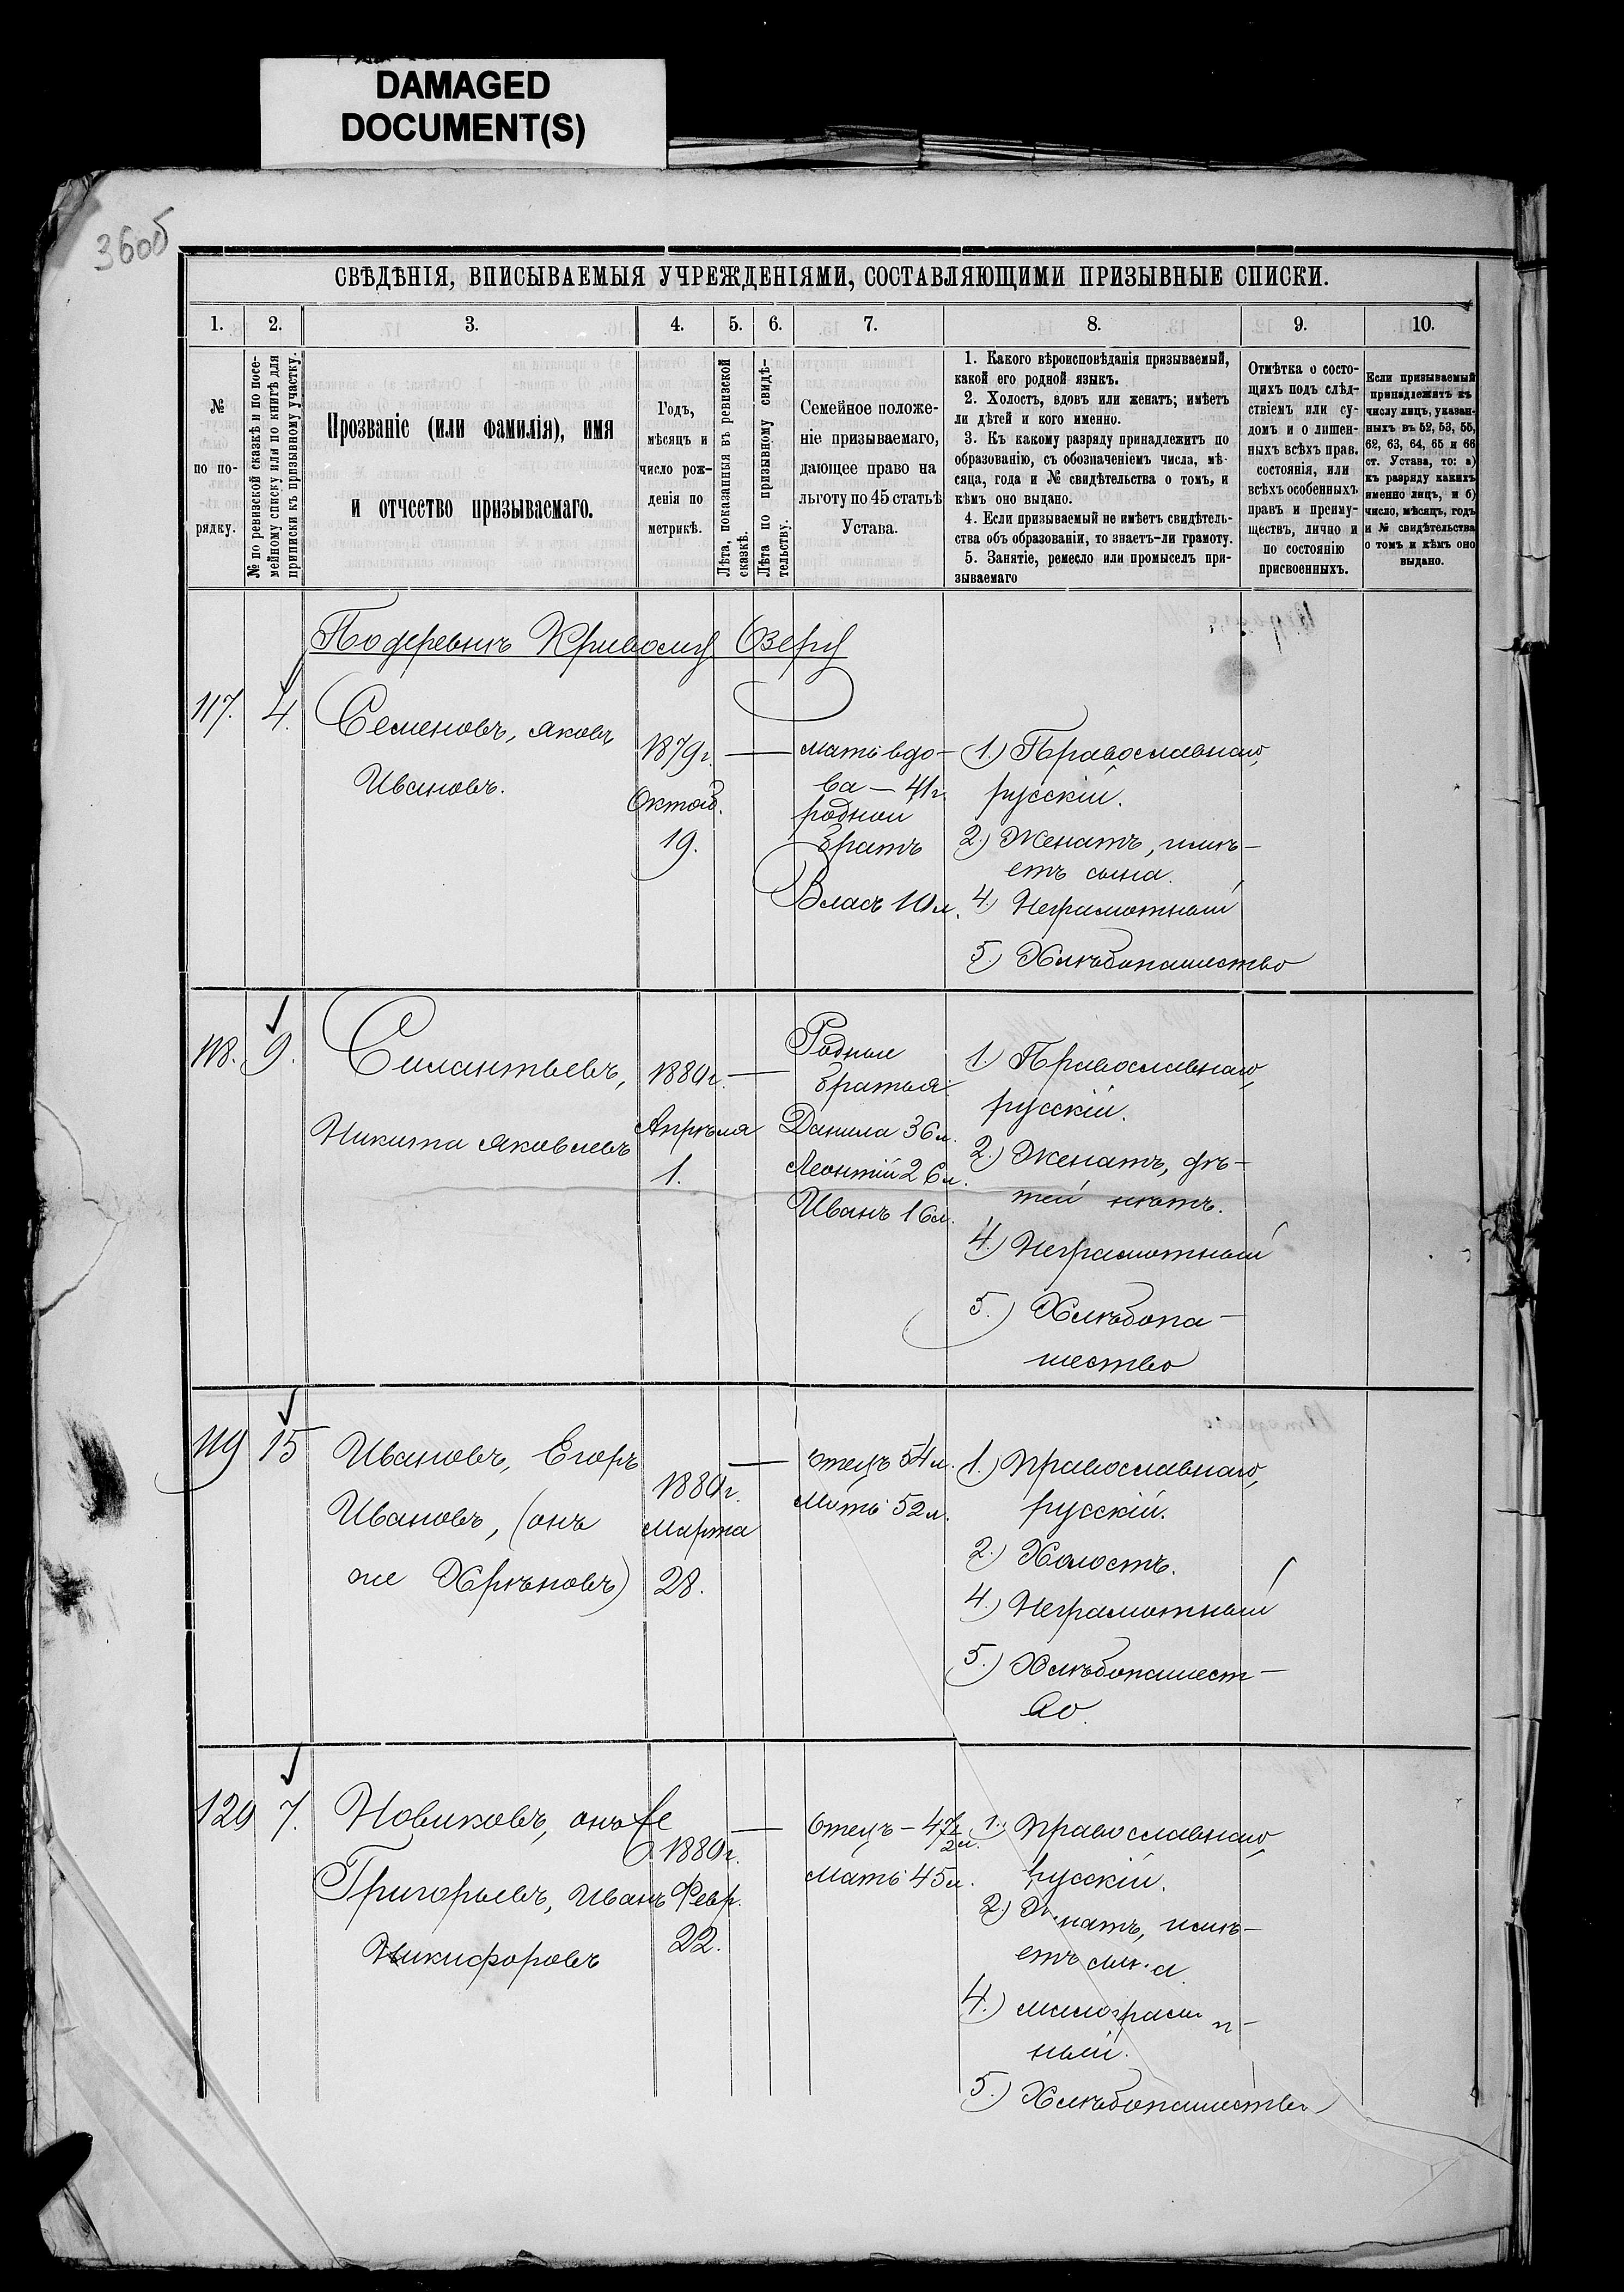 DAMAGED
DOCUMENT(S)
36об
СВѢДѢНІЯ, ВПИСЫВАЕМЫЯ УЧРЕЖДЕНІЯМИ, СОСТАВЛЯЮЩИМИ ПРИЗЫВНЫЕ СПИСКИ.
1. 2. 3. 4. 5. 6. 7. 8. 9. 10.
№
по по-
рядку.
№ по ревизской сказкѣ и по посе-
мейному списку или по книгѣ для
приписки къ призывному участку.
Прозваніе (или фамилія), имя
и отчество призываемаго.
Годъ,
мѣсяцъ и
число рож-
денія по
метрикѣ.
Лѣта, показанныя въ ревизской
сказкѣ.
Лѣта по призывному свидѣ-
тельству.
Семейное положе-
ніе призываемаго,
дающее право на
льготу по 45 статьѣ
Устава.
1. Какого вѣроисповѣданія призываемый,
какой его родной языкъ.
2. Холостъ, вдовъ или женатъ; имѣетъ
ли дѣтей и кого именно.
3. Къ какому разряду принадлежитъ по
образованію, съ обозначеніемъ числа, мѣ-
сяца, года и № свидѣтельства о томъ, и
кѣмъ оно выдано.
4. Если призываемый не имѣетъ свидѣтель-
ства объ образованіи, то знаетъ-ли грамоту.
5. Занятіе, ремесло или промыселъ при-
зываемаго
Отмѣтка о состо-
щихъ подъ слѣд-
ствіемъ или су-
домъ и о лишен-
ныхъ всѣхъ прав.
состоянія, или
всѣхъ особенныхъ
правъ и преиму-
ществъ, лично и
по состоянію
присвоенныхъ.
Если призываемый
принадлежитъ къ
числу лицъ, указан-
ныхъ въ 52, 53, 55,
62, 63, 64, 65 и 66
ст. Устава, то: а)
къ разряду какихъ
именно лицъ, и б)
число, мѣсяцъ, годъ
и № свидѣтельства
о томъ и кѣмъ оно
выдано.
По деревнѣ Кривому Озеру
117. 4.
Семеновъ, Яковъ
Ивановъ.
1879г.
Октяб.
19.
мать вдо-
ва — 41г.
родной
братъ
Власъ 10л.
1.) Православнаго,
русскій.
2.) Женатъ, имѣ-
етъ сына.
4.) Неграмотный
5.) Хлѣбопашество
118. 9.
Силантьевъ,
Никита Яковлевъ
1880г.
Апрѣля
1.
Родные
братья:
Данила 36л.
Леонтій 26л.
Иванъ 16л.
1.) Православнаго,
русскій.
2.) Женатъ, дѣ-
тей нѣтъ.
4.) Неграмотный
5.) Хлѣбопа-
шество
119 15
Ивановъ, Егоръ
Ивановъ, (онъ
же Хрѣновъ)
1880г.
Марта
28.
Отецъ 54л.
Мать 52л.
1.) Православнаго,
русскій.
2.) Холостъ.
4.) Неграмотный
5.) Хлѣбопашест-
во.
120 7.
Новиковъ, онъ же
Григорьевъ, Иванъ
Никифоровъ
1880г.
Февр.
22.
Отецъ — 47½л.
Мать 45л.
1.) Православнаго,
русскій.
2.) Женатъ, имѣ-
етъ сына.
4.) малограмот-
ный.
5.) Хлѣбопашество